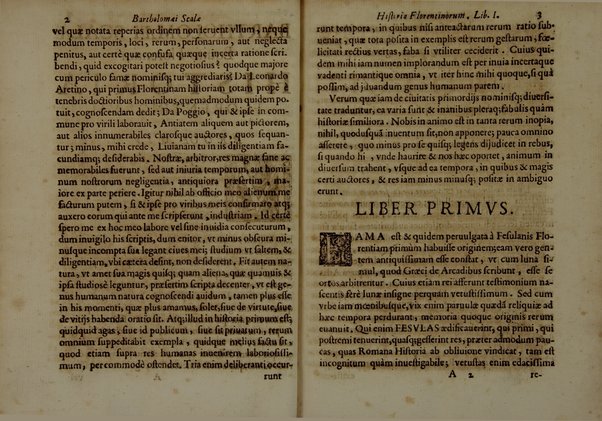 2 Bartholomæi Scalæ
vel quæ notata reperias ordinem non seruent vllum, neque
modum temporis, loci, rerum, personarum, aut neglecta
penitus, aut certe quæ confusa, quæque incerta ratione scri-
bendi, quid excogitari potest negotiosius? quodque majore
cum periculo famæ nominisq; tui aggrediaris? Da Leonardo
Aretino, qui primus Florentinam historiam totam propè è
tenebris doctioribus hominibus, quemadmodum quidem po-
tuit, cognoscendam dedit; Da Poggio, qui & ipse in com-
mune pro virili laborauit, Antiatem aliquem aut pictorem,
aut alios innumerabiles clarosque auctores, quos sequan-
tur; minus, mihi crede, Liuianam tu in iis diligentiam fa-
cundiamq; desiderabis. Nostræ, arbitror, res magnæ sane ac
memorabiles fuerunt, sed aut iniuria temporum, aut homi-
num nostrorum negligentia, antiquiora præsertim, maiore
ex parte periere. Igitur nihil ab officio meo alienum me
facturum putem, si & ipse pro viribus meis confirmaro atq;
auxero eorum qui ante me scripserunt, industriam. Id certè
spero me ex hoc meo labore vel sine inuidia consecuturum,
dum inuigilo his scriptis, dum enitor, vt minus obscura mi-
nusque incompta sua legant ciues mei, studium saltem, &
diligentiam, vbi cætera desint, non desiderent. Fit autem na-
tura, vt amet sua magis quisq; quam aliena, quæ quamuis &
ipsa studiosè leguntur, præsertim scripta decenter, vt est ge-
nus humanum natura cognoscendi auidum, tamen plus esse
in his momenti, quæ plus amamus, solet, siue de virtute, siue
de vitiis habenda oratio sit. Atq; illud in historia primum est;
quidquid agas, siue id publicum, siue sit priuatum, rerum
omnium suppeditabit exempla, quidque melius factu sit,
quod etiam supra res humanas inuenirem laboriosissi-
mum, per commodè ostendet. Tria enim deliberanti occur-
runt
Historiæ Florentinorum, Lib. I. 3
runt tempora, in quibus nisi anteactarum rerum ratio sub-
ueniat, quæ tota posita in exemplis est rerum gestarum, fœ-
licitati rectius veritas, faba si vtiliter ceciderit. Cuius qui-
dem mihi iam numen implorandum est per inuia incertaque
vadenti rimantique omnia, vt iter hinc mihi quoque, si quà
possim, ad juuandum genus humanum parem.
Verum quæ iam de ciuitatis primordijs nominisq; diuersi-
tate traduntur, ea varia sunt & inanibus pleraq; fabulis quàm
historiæ similiora. Nobis in animo est in tanta rerum inopia,
nihil, quod usquã inuentum sit, non apponere; pauca omnino
asserere, quo minus pro se quisq; legens dijudicet in rebus,
si quando hi, vnde haurire & nos hæc oportet, animum in
diuersum trahent, vsque ad ea tempora, in quibus & magis
certi auctores, & res iam minus minusq; positæ in ambiguo
erunt.
LIBER PRIMVS.
FAMA est & quidem peruulgata à Fesulanis Flo-
rentinum primum habuisse originem; eam vero gen-
tem antiquissimam esse constat, vt cum luna si-
mul, quod Græci de Arcadibus scribunt, esse se
ortos arbitrentur. Cuius etiam rei afferunt testimonium na-
scentis ferè lunæ insigne perquam vetustissimum. Sed cum
vrbe iam mœnibusque, vix enim paruulæ quædã reliquiæ ad
hæc tempora perdurant, memoria quoque originis rerum
euanuit. Qui enim FESVLAS ædificauerint, qui primi, qui
postremi tenuerint, quasq; gesserint res, præter admodum pau-
cas, quas Romana Historia ab obliuione vindicat, tam est
incognitum quàm inuestigabile; vetustas enim edacissima
A 2 re-